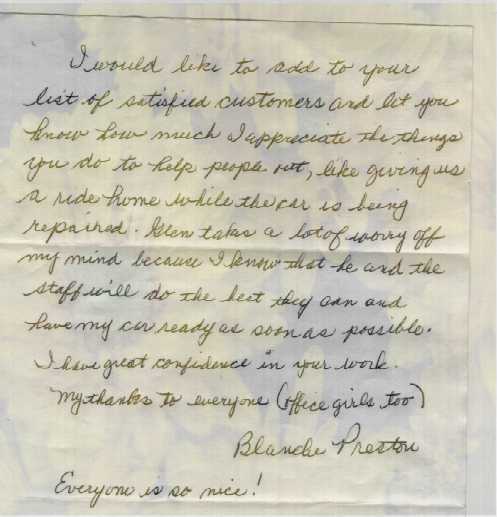 I would like to add to your
list of satisfied customers and let you
know how much I appreciate the things
you do to help people out, like giving us
a ride home while the car is being
repaired. Glen takes a lot of worry off
my mind because I know that he and the
staff will do the best they can and
have my car ready as soon as possible.
I have great confidence in your work.
My thanks to everyone (office girls too)
Blanche Preston
Everyone is so nice!